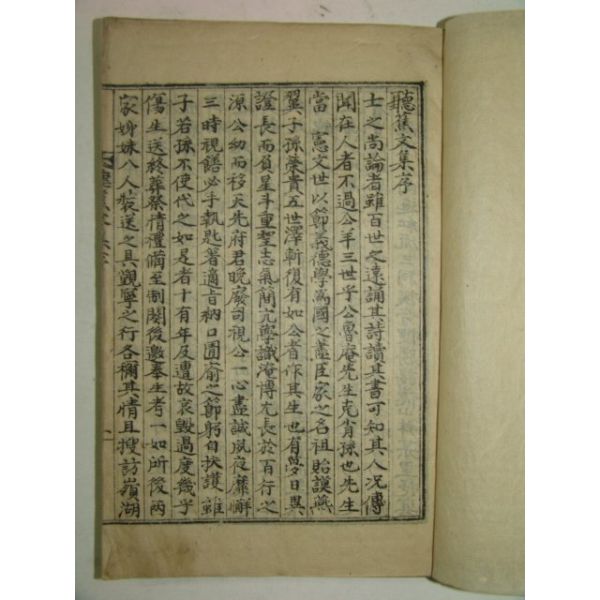 聽蕉文集序
士之尚論者雖百世之遠誦其詩讀其書可知其人况傳
聞在人者不過公羊三世乎公魯庵先生克肖孫也先生
當 憲文世以節義德學爲國之藎臣家之名祖貽謨燕
翼子孫榮貴五世澤斬復有如公者作其生也有夢日與
證長而負星斗重望志氣簡亢學識淹博尤長於百行之
源公幼而移天先府君晩廢司視公一心盡誠夙夜靡懈
三時視膳必手執匙著適旨納口圊廁之節躬自扶護雖
子若孫不使代之如是者十有年及遭故哀毁過度幾乎
傷生送終葬祭情禮備至制闋後邀奉生考一如所後內
家姊妹八人裝送之具觀寧之行各稱其情且搜訪嶺湖